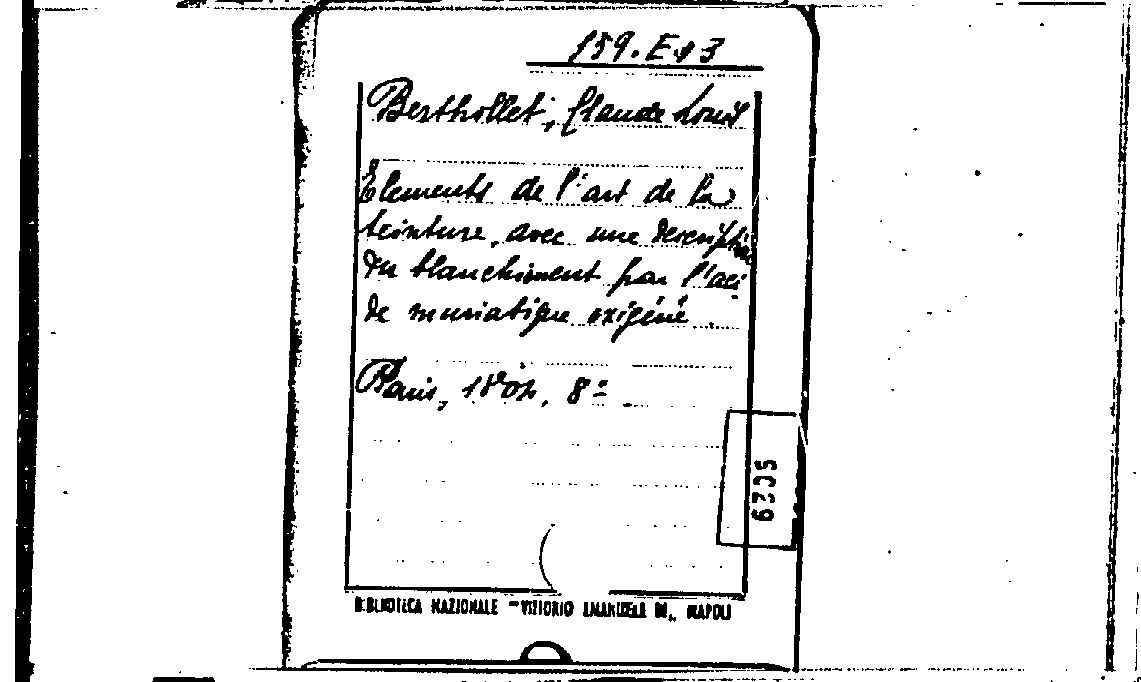 159. E 13
Berthollet, Claude Louis
Elements de l'art de la
teinture, avec une description
du blanchiment par l'aci
de muriatique oxigéné.
Paris, 1804, 8º
BIBLIOTECA NAZIONALE "VITTORIO EMANUELE III„ NAPOLI